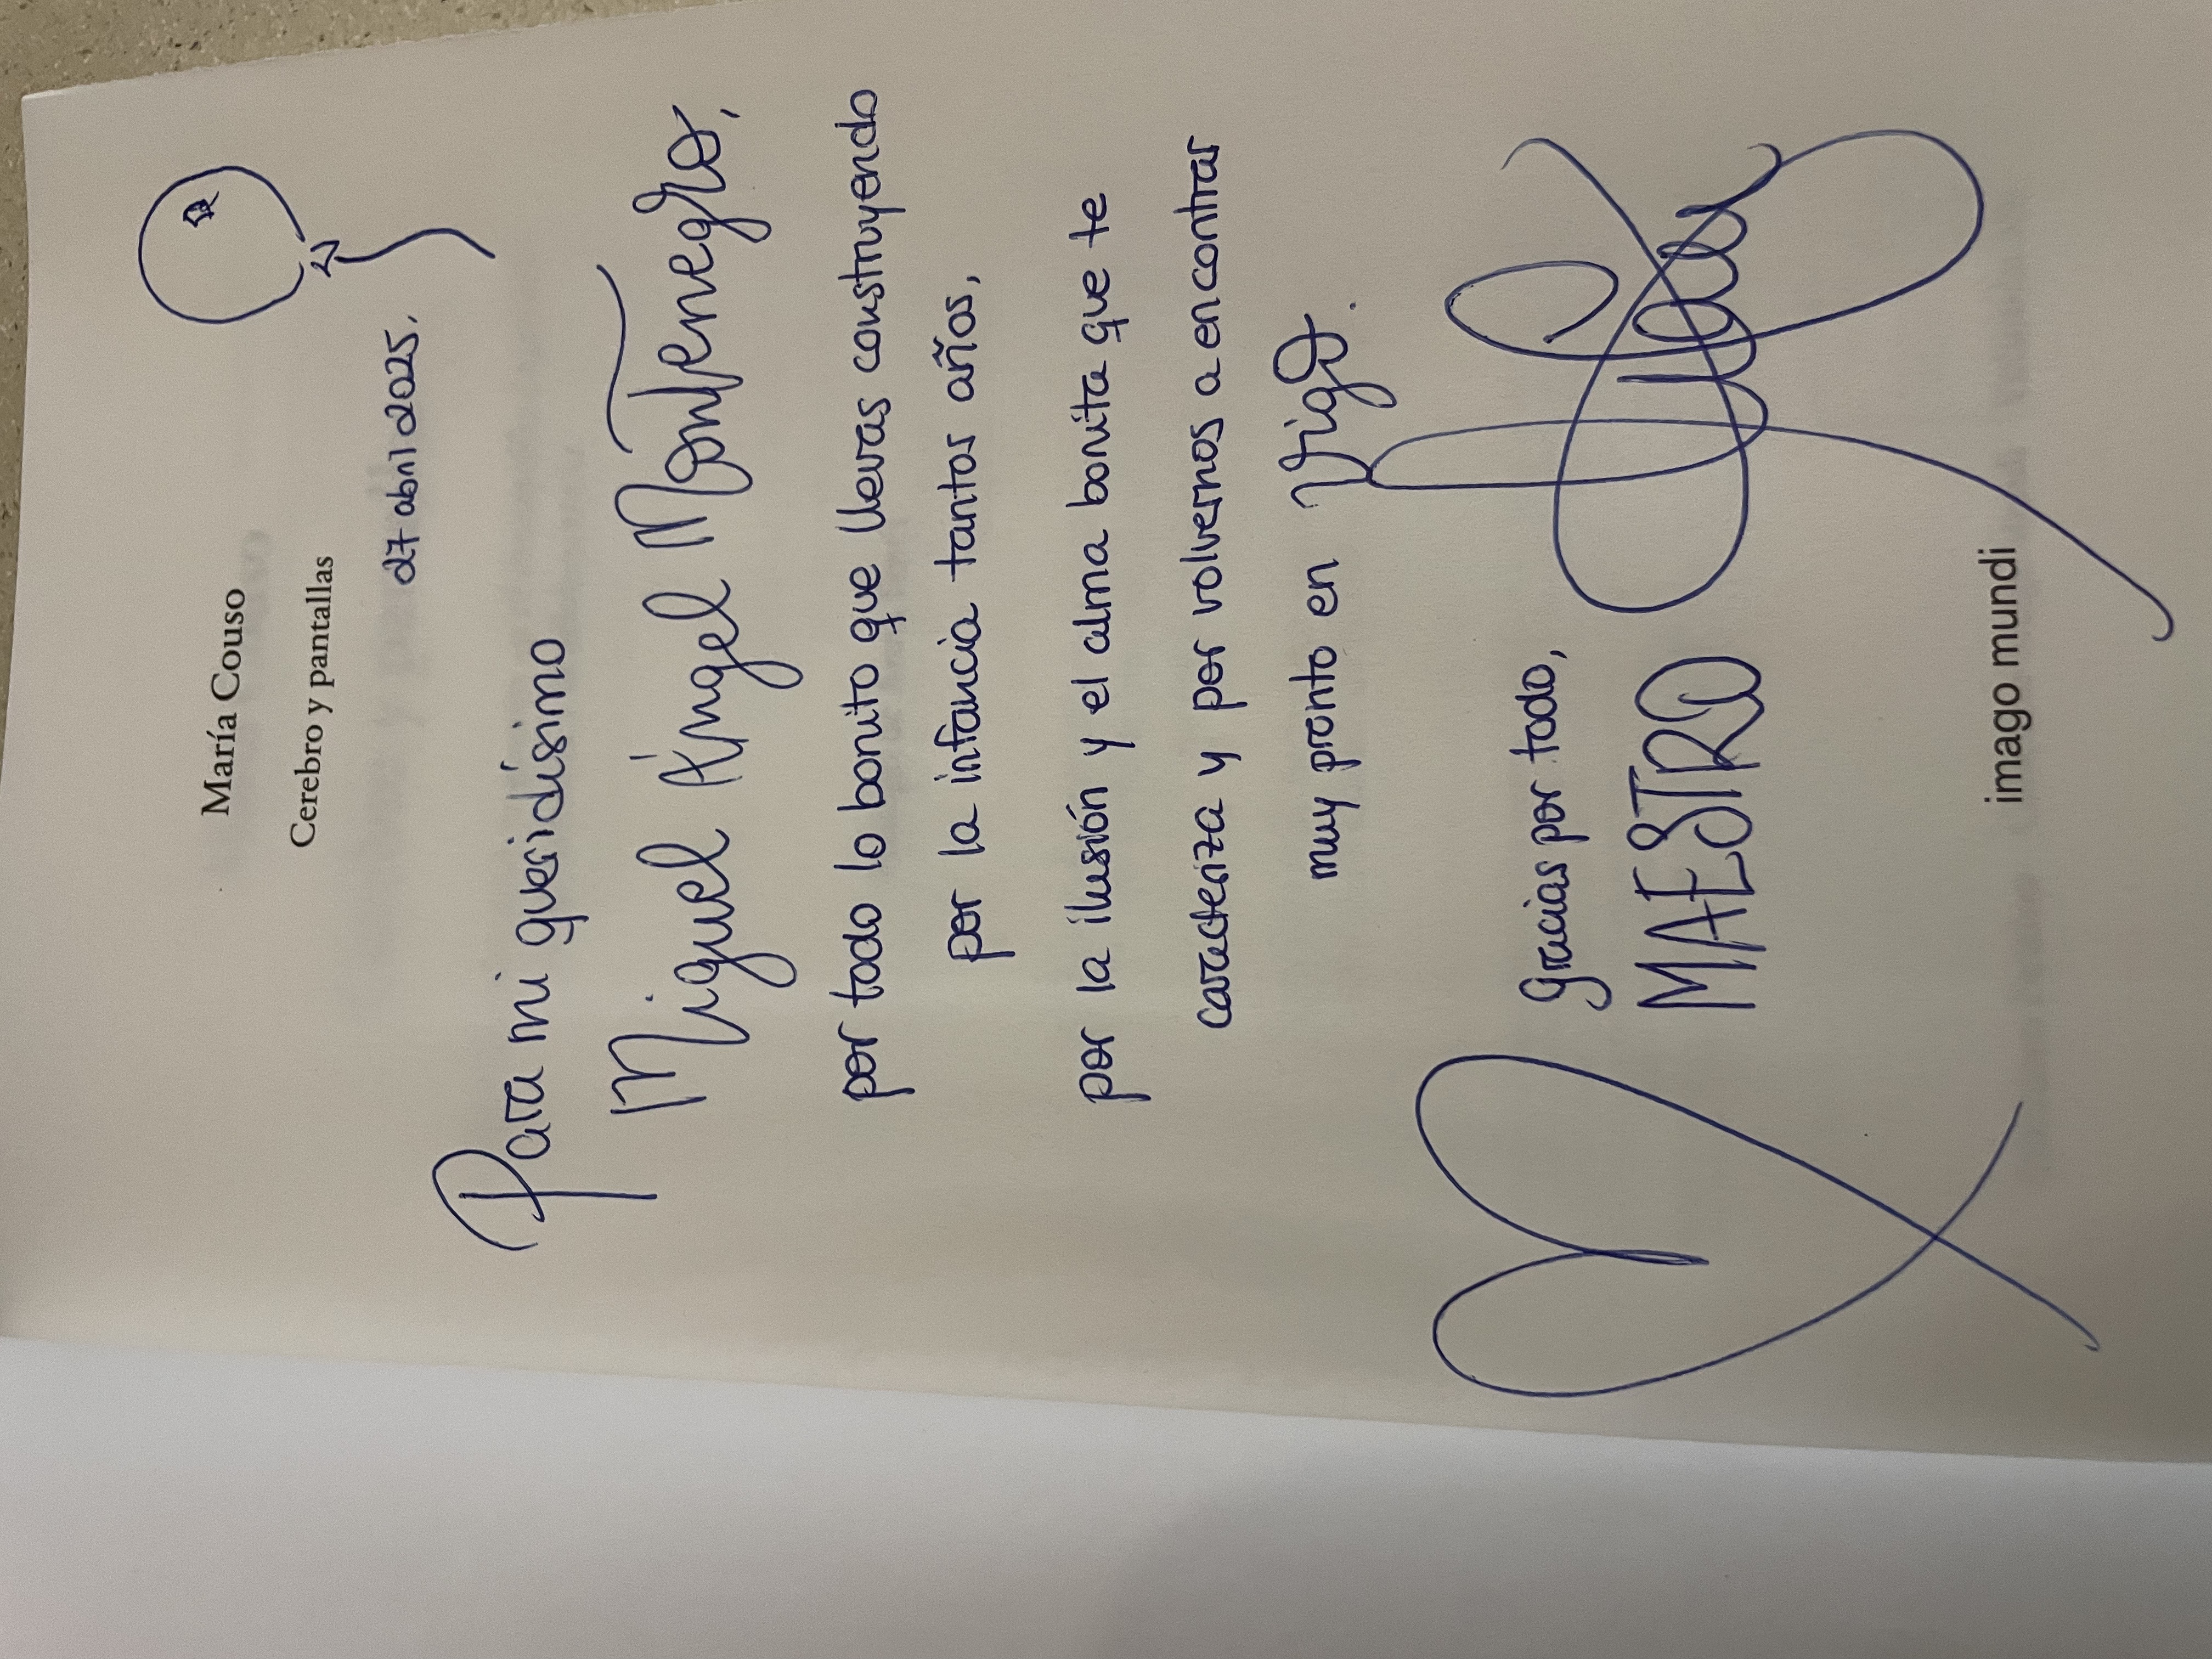 María Couso
Cerebro y pantallas
27 abril 2025.
Para mi queridísimo
Miguel Ángel Montenegro,
por todo lo bonito que llevas construyendo
por la infancia tantos años,
por la ilusión y el alma bonita que te
caracteriza y por volvernos a encontrar
muy pronto en Vigo.
Gracias por todo,
MAESTRO
imago mundi